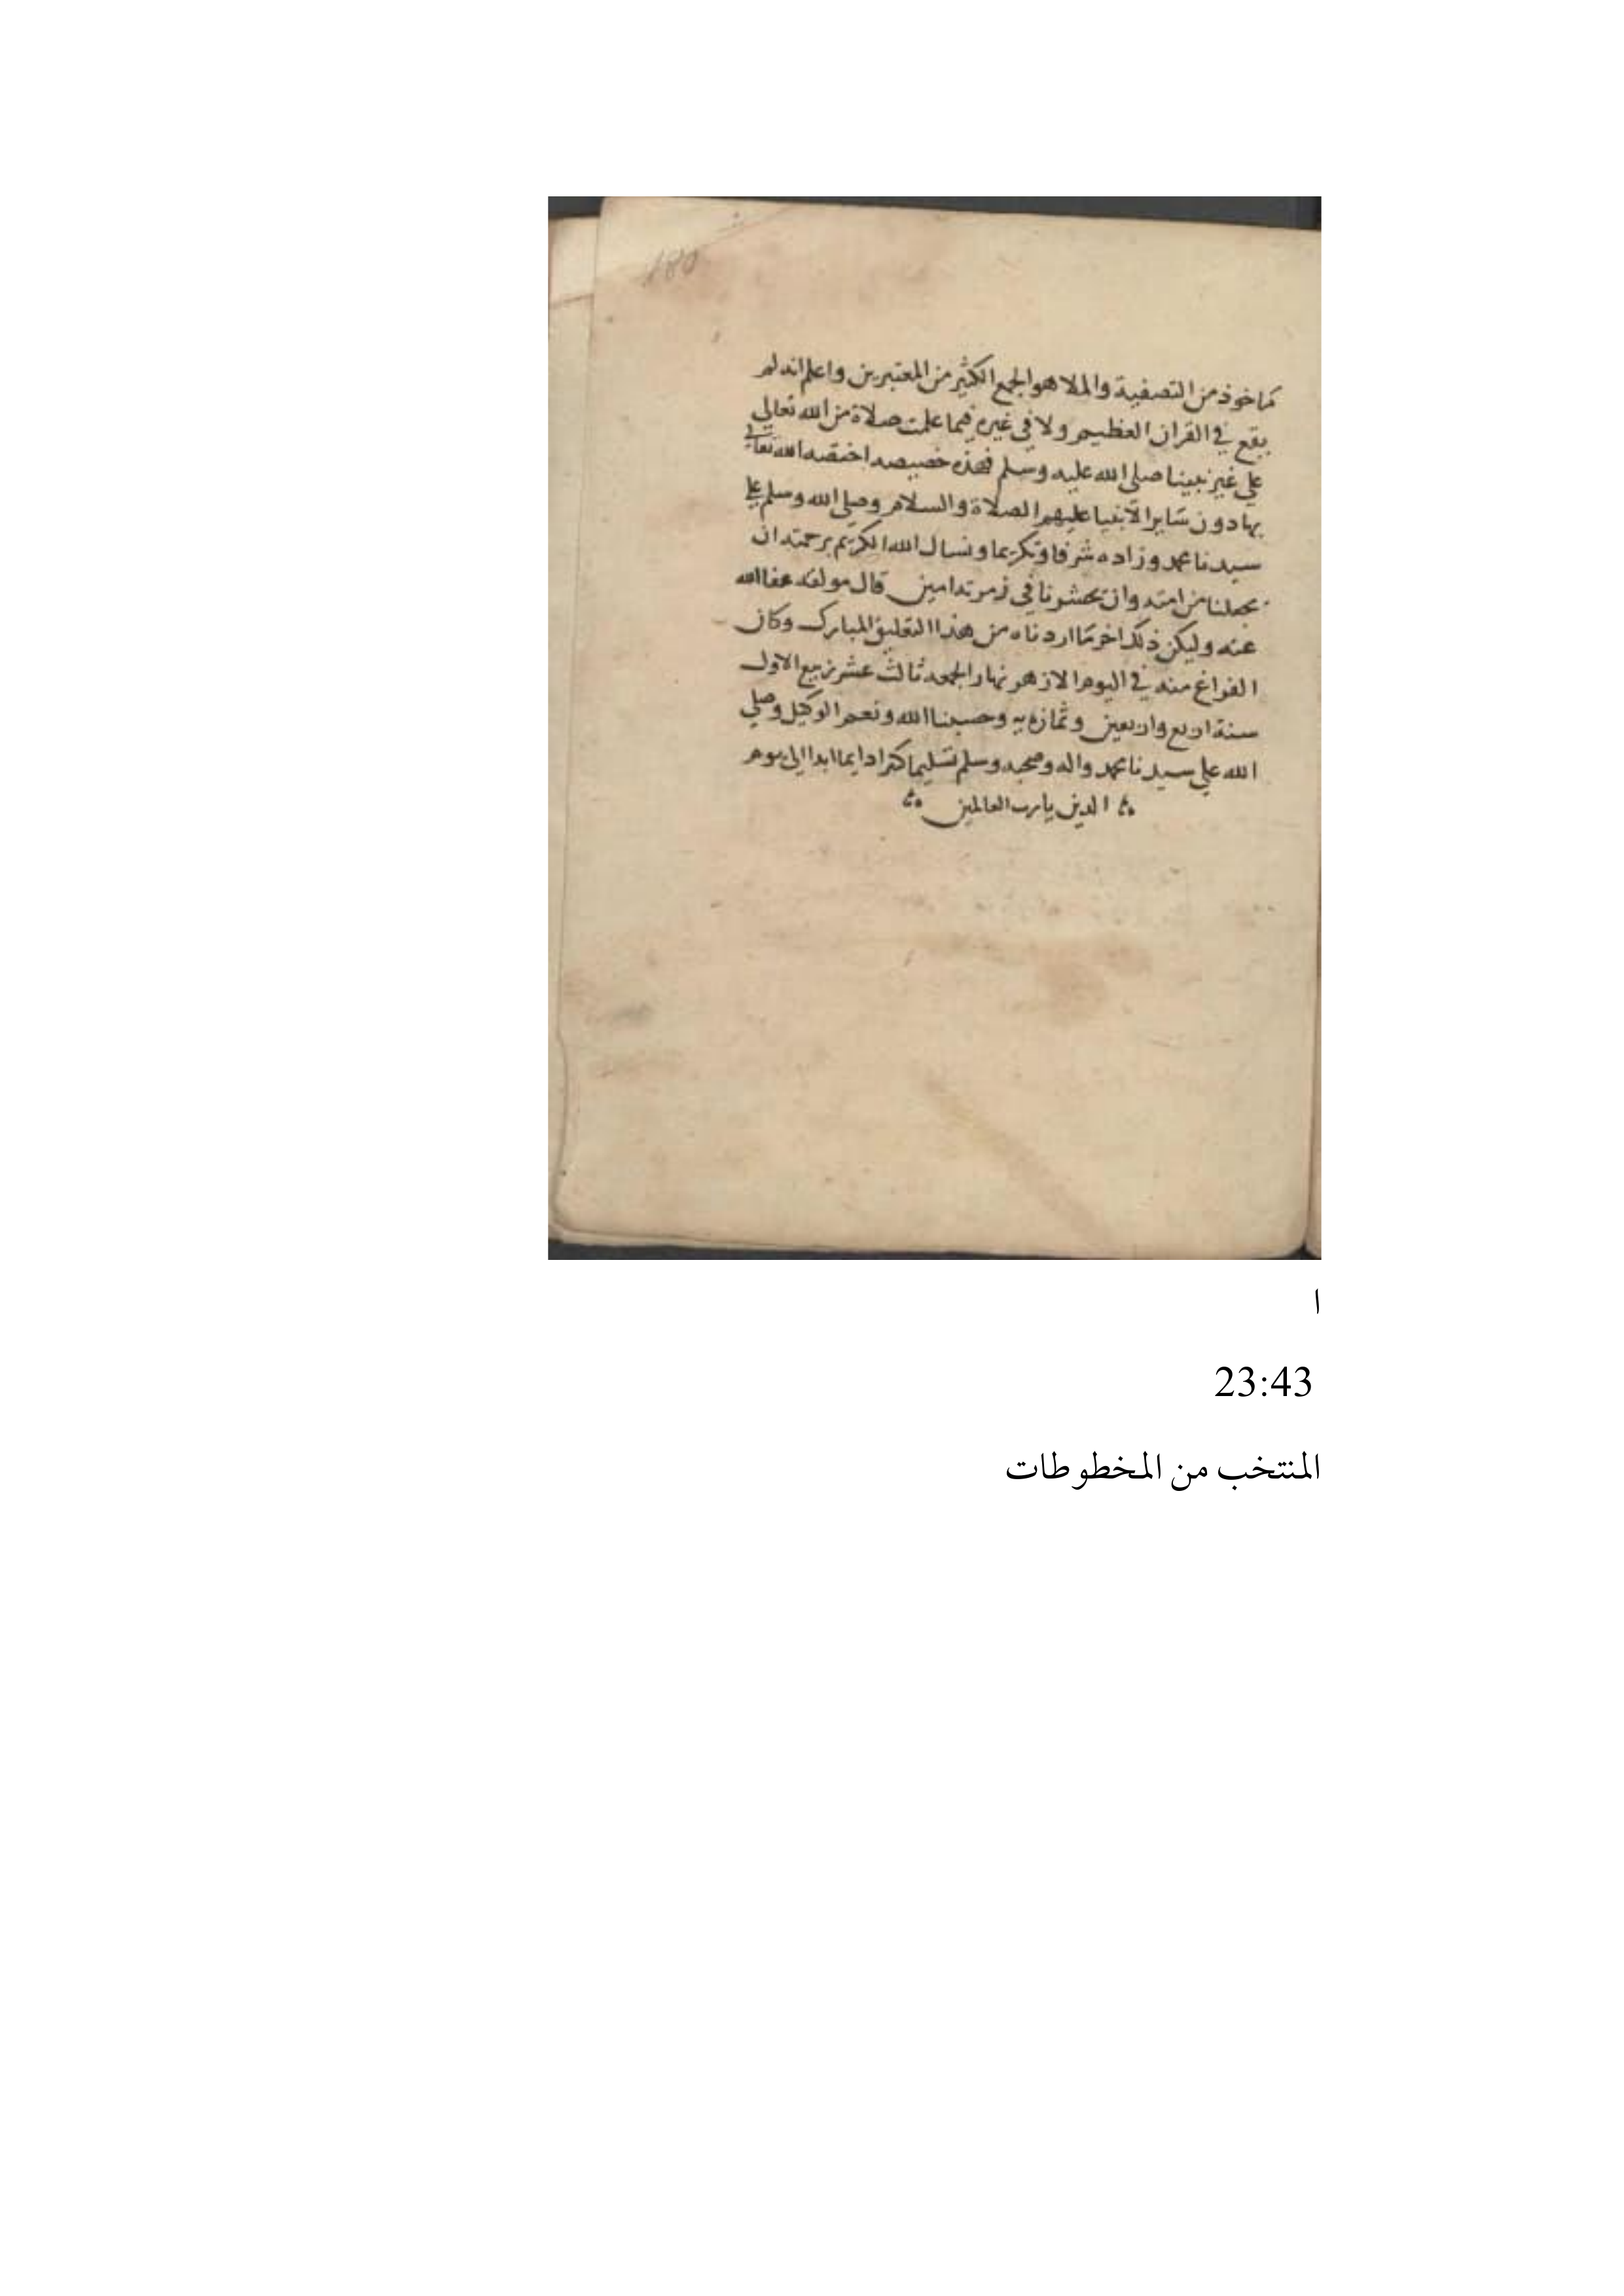 180
مماخوذ من التصفية والملا هو الجمع الكثير من المعتبرين واعلم انه لم
يقع في القران العظيم ولا في غيره فيما علمت صلاة من الله تعالي
علي غير نبينا صلى الله عليه وسلم فهذه خصيصه اختصه الله تعالي
بها دون ساير الانبيا عليهم الصلاة والسلام وصلى الله وسلم علي
سيدنا محمد وزاده شرفا وتكريما ونسال الله الكريم برحمته ان
يجعلنا من امته وان يحشرنا في زمرته امين قال مولفه عفا الله
عنه وليكن ذلك اخر ما اردناه من هذا التعليق المبارك وكان
الفراغ منه في اليوم الازهر نهار الجمعه ثالث عشر ربيع الاول
سنة اربع واربعين وثمانمايه وحسبنا الله ونعم الوكيل وصلي
الله علي سيدنا محمد واله وصحبه وسلم تسليما كثرا دايما ابدا الي يوم
الدين يا رب العالمين
ا
23:43
المنتخب من المخطوطات